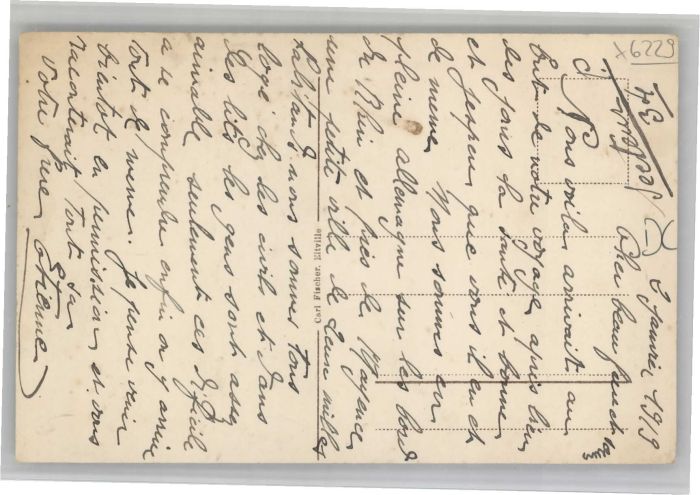 x6229
2 Janvier 1919
Cher beau frere et
Nous voila arrivait au
but de votre voyage, après bien
des jours la santé et bonne
et j'espere que vous il en et
de meme, Nous sommes en
pleine allemagne sur les bord
du Rhin et pres de Mayence
une petite ville de deux milles
habitants nous sommes tous
logé chez les civil et dans
des lits les gens sont assez
aimable seulement ces difficile
a se comprendre enfin on y arrive
tout de meme. Je pense venir
bientot en permission et vous
racontrait tout sa
Votre frere
Etienne
Carl Fischer, Eltville